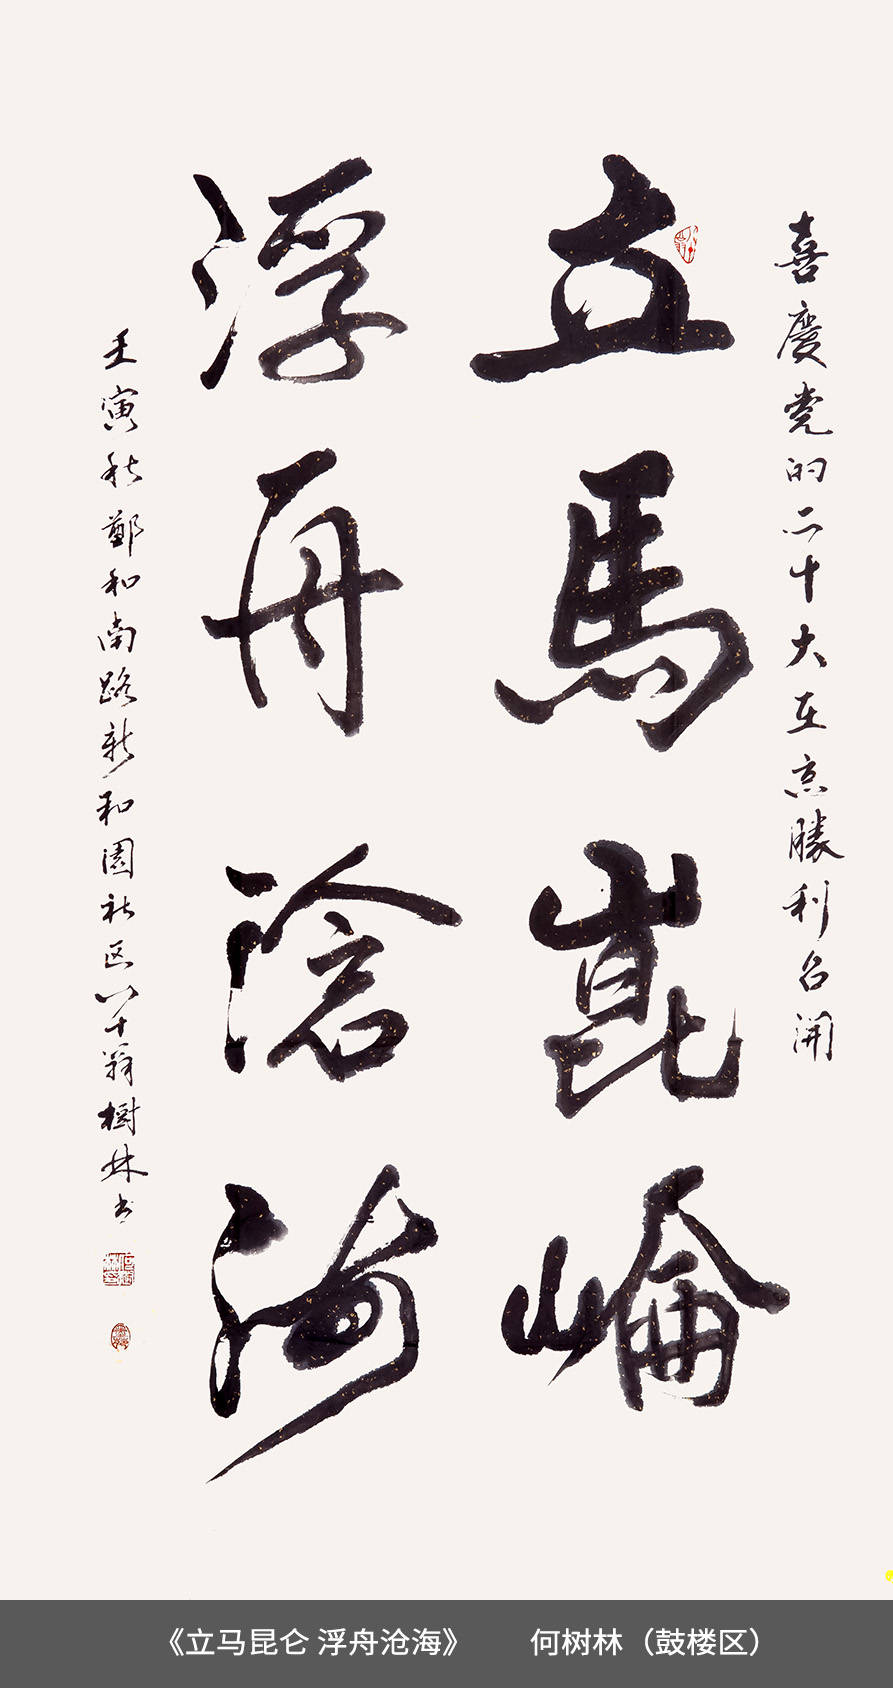 喜慶党的二十大在京勝利召開
立馬崑崙
浮舟滄海
壬寅秋鄭和南路新和園社区八十翁樹林书
《立马昆仑 浮舟沧海》 何树林（鼓楼区）